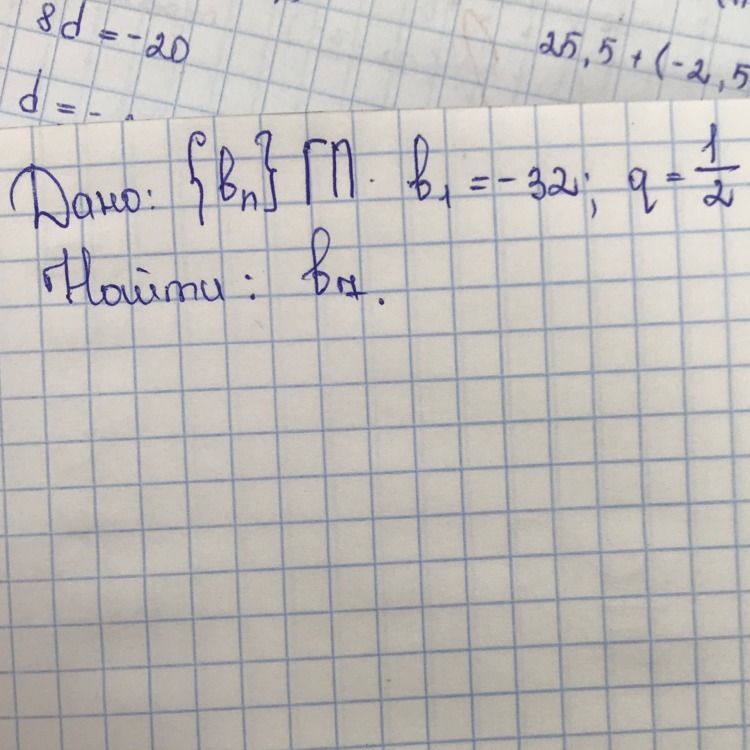 8d = -20
25,5 + (-2,5
d = -
Дано: {bₙ} ГП. b₁ = -32; q = 1/2
Найти: b₇.